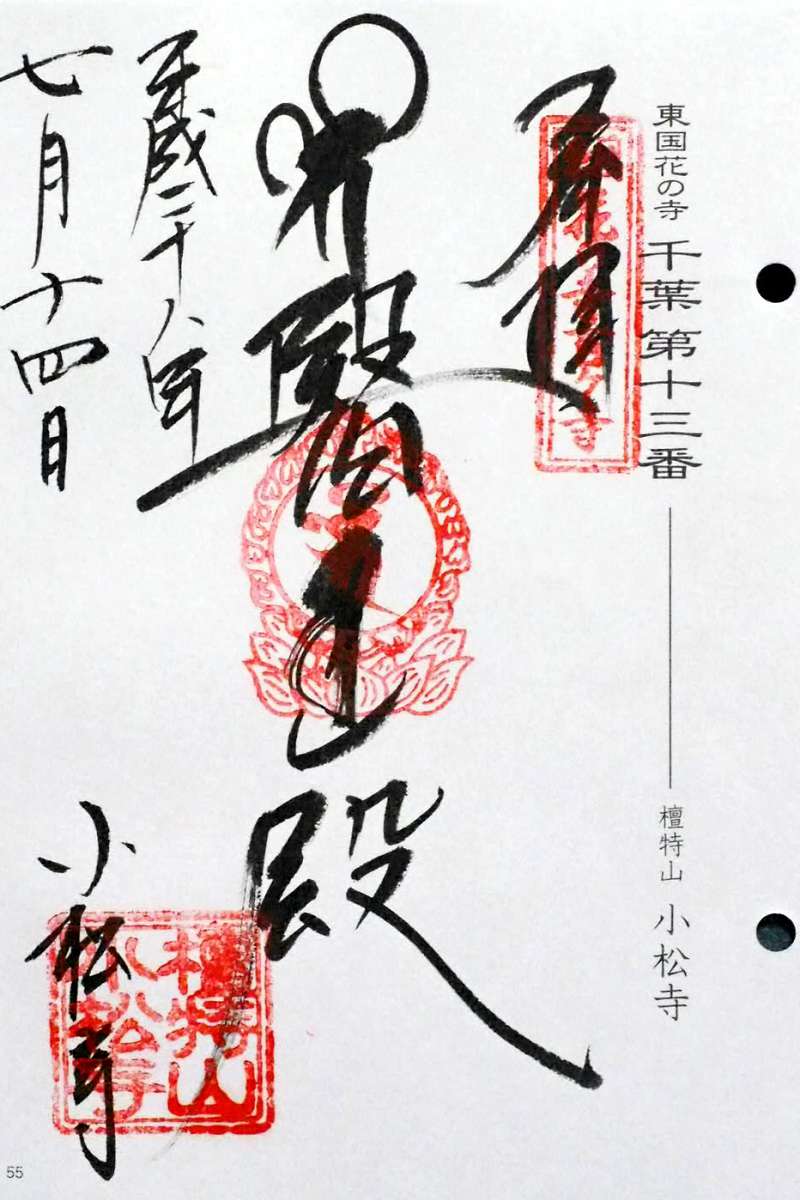 東国花の寺 千葉第十三番 檀特山 小松寺
奉拝
醫王殿
平成二十八年
七月十四日
小松寺
檀特山
小松寺
55